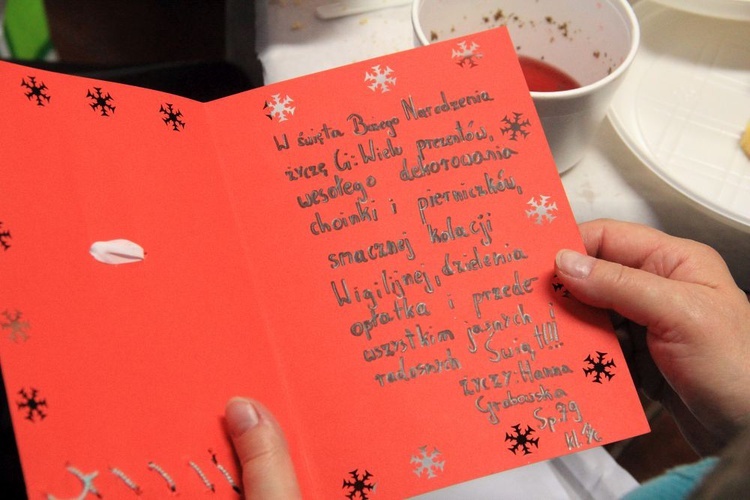 W święta Bożego Narodzenia
życzę Ci: Wielu prezentów,
wesołego dekorowania
choinki i pierniczków,
smacznej kolacji
Wigilijnej, dzielenia
opłatka i przede
wszystkim jasnych i
radosnych Świąt!!!
życzy: Hanna
Grabowska
Sp 79
kl.